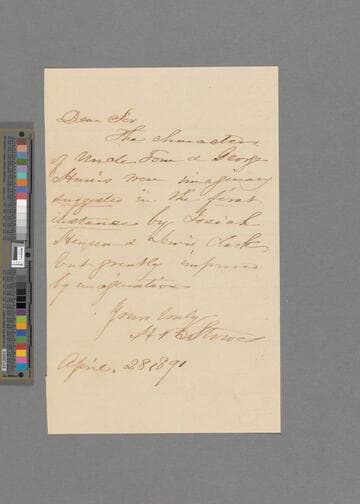 Dear Sir
The characters
of Uncle Tom & George
Harris were imaginary
suggested in the first
instance by Josiah
Henson & Lewis Clark,
but greatly improved
by imagination
Yours truly
H B Stowe
April 28 1891